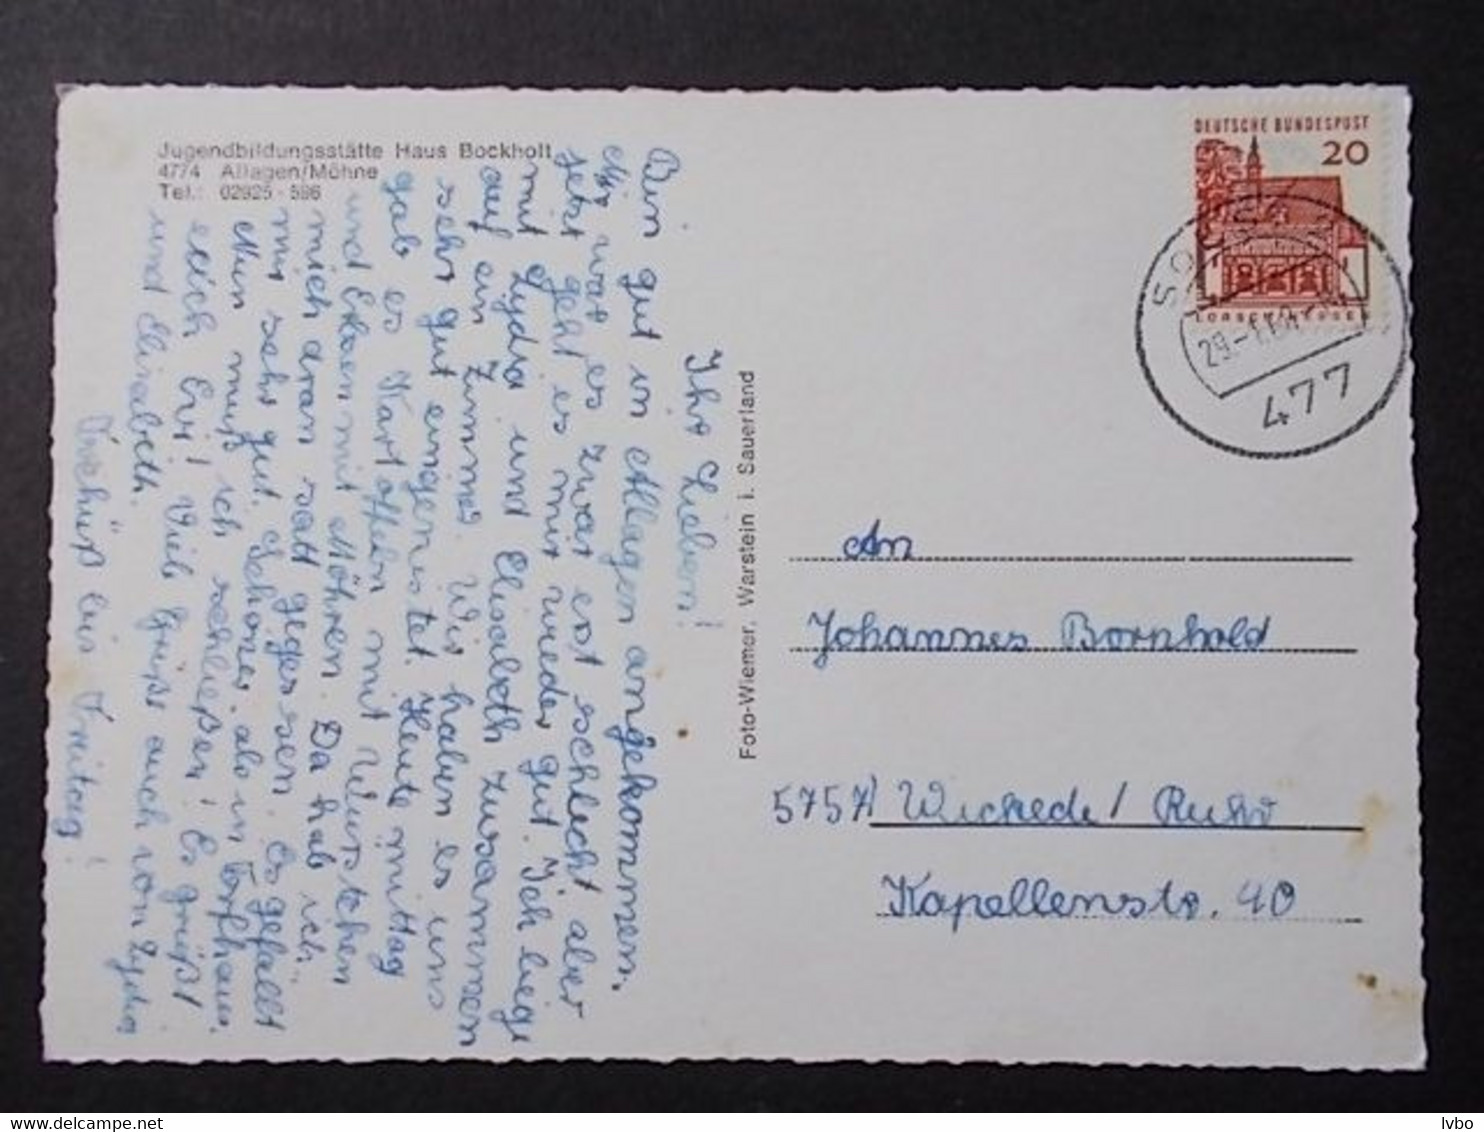 Jugendbildungsstätte Haus Bockholt
4774 Allagen/Möhne
Tel.: 02925 - 596
Ihr Lieben!
Bin gut in Allagen angekommen.
Mir war es zwar erst schlecht aber
jetzt geht es mir wieder gut. Ich liege
mit Lydia und Elisabeth zusammen
auf ein Zimmer. Wir haben es uns
sehr gut eingenistet. Heute mittag
gab es Kartoffeln mit Würstchen
und Erbsen mit Möhren. Da hab ich
mich dran satt gegessen. Es gefällt
mir sehr gut. Schöner als in
Nun muß ich schließen! Es grüßt
euch Evi! Viele Grüße auch von Lydia
und Elisabeth.
Tschüß bis Freitag!
Foto-Wiemer, Warstein i. Sauerland
DEUTSCHE BUNDESPOST
20
LORSCH/HESSEN
SOEST
477
An
Johannes Bornhold
5757 Wickede/Ruhr
Kapellenstr. 40